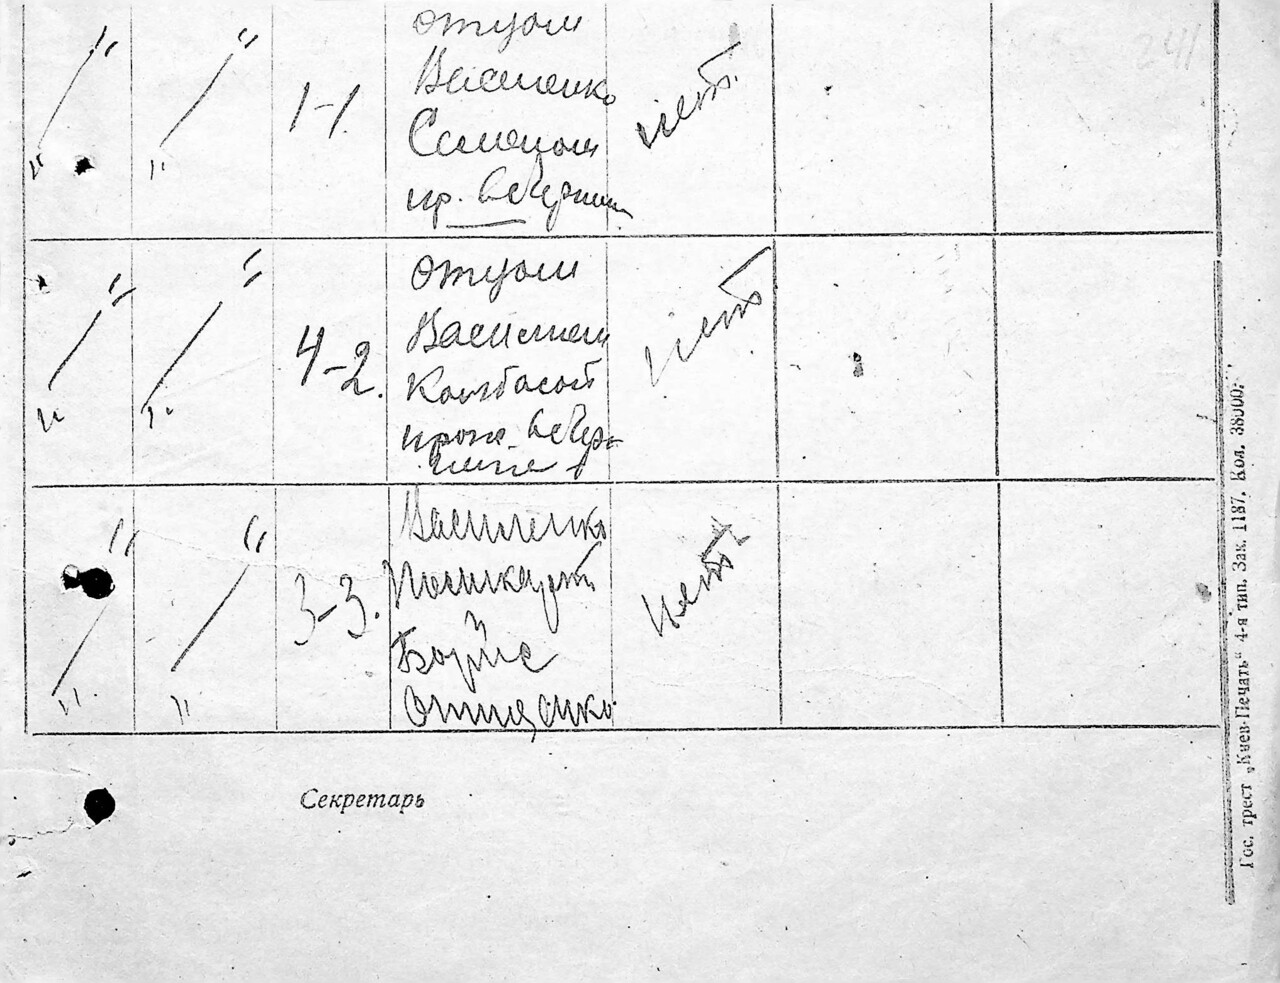 241
" " 1-1. отцом нет.
Василенко
Семеном
пр.
" "
" " 4-2. отцом нет
Василием
Колбасой
" "
" " 3-3. Василенко нет
Поликарп
и
Борис
Онищенко
" "
Секретарь
Гос. трест „Киев-Печать“ 4-я тип. Зак. 1187. Кол. 38000.